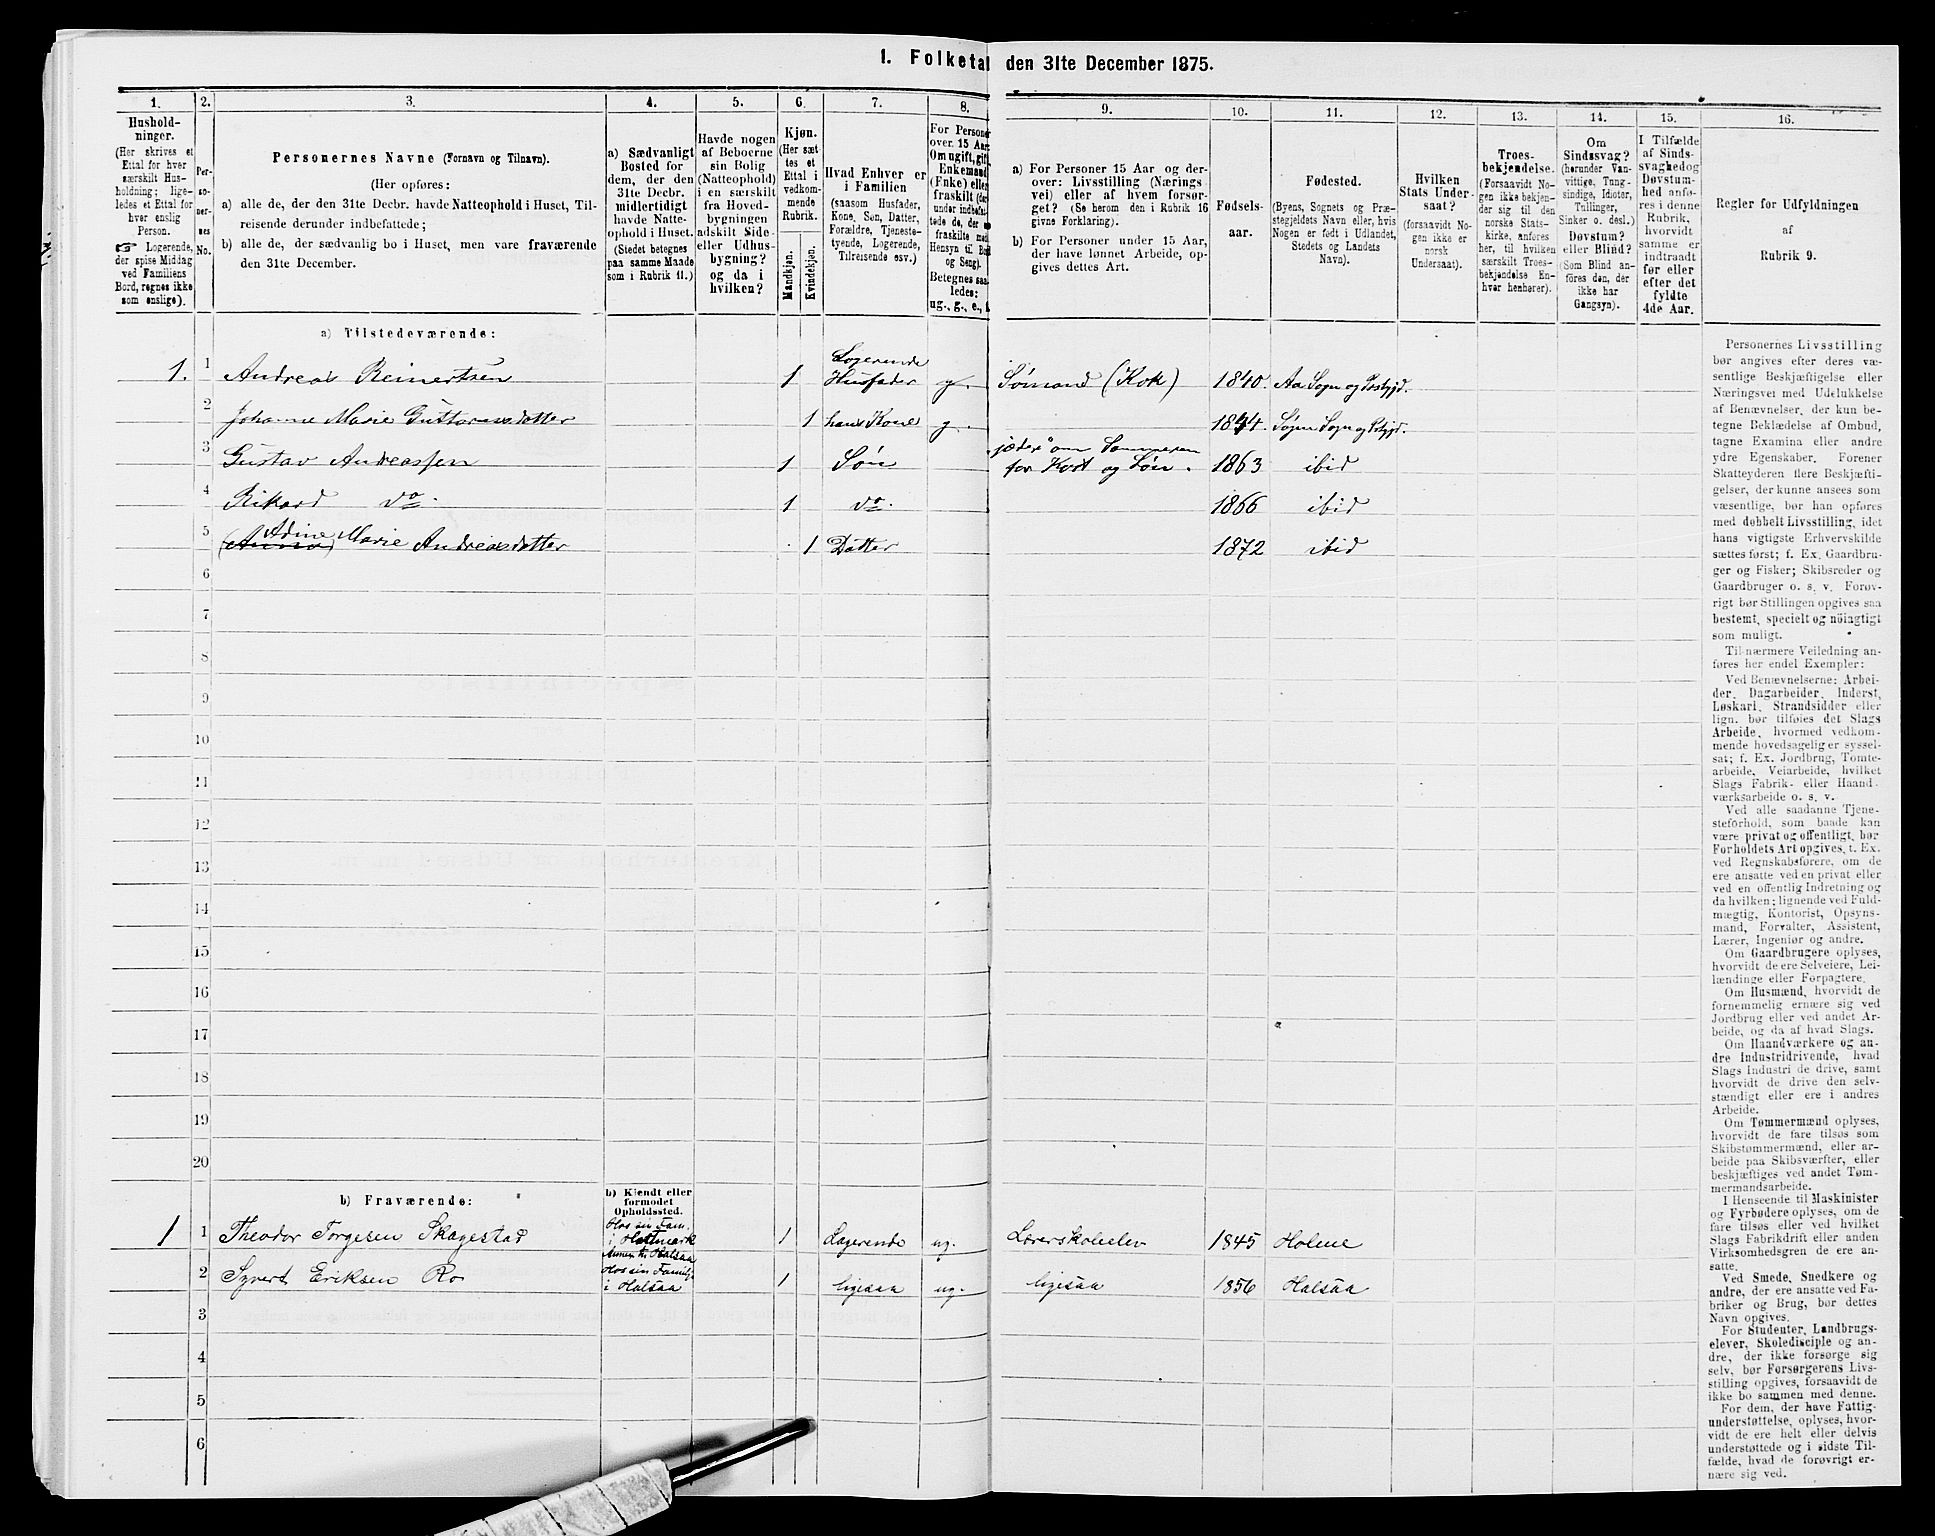 1. Folketal den 31te December 1875.
1. 2. 3. 4. 5. 6. 7. 8. 9. 10. 11. 12. 13. 14. 15. 16.
Hushold-
ninger.
(Her skrives et
Ettal for hver
særskilt Hus-
holdning; lige-
ledes et Ettal for
hver enslig
Person.
☞ Logerende,
der spise Middag
ved Familiens
Bord, regnes ikke
som enslige).
Per-
so-
ner-
nes
No.
Personernes Navne (Fornavn og Tilnavn).
(Her opføres:
a) alle de, der den 31te Decbr. havde Natteophold i Huset, Til-
reisende derunder indbefattede;
b) alle de, der sædvanlig bo i Huset, men vare fraværende
den 31te December.
a) Sædvanligt
Bosted for
dem, der den
31te Decbr.
midlertidigt
havde Natte-
ophold i Huset.
(Stedet betegnes
paa samme Maade
som i Rubrik 11.)
Havde nogen
af Beboerne
sin Bolig
(Natteophold)
i en særskilt
fra Hoved-
bygningen
adskilt Side-
eller Udhus-
bygning?
og da i
hvilken?
Kjøn.
(Her sæt
tes et
Ettal i
vedkom-
mende
Rubrik.
Mandkjøn.
Kvindekjøn.
Hvad Enhver er
i Familien
(saasom Husfader,
Kone, Søn, Datter,
Forældre, Tjeneste-
tyende, Logerende,
Tilreisende osv.).
For Persone
over 15 Aar
Om ugift, gift,
Enkemand
(Enke) elle
fraskilt (der
under indbefat-
tede de, der
fraskilte med
Hensyn til Bord
og Seng).
Betegnes saa-
ledes:
ug., g., e.,
a) For Personer 15 Aar og der-
over: Livsstilling (Nærings-
vei) eller af hvem forsør-
get? (Se herom den i Rubrik 16
givne Forklaring).
b) For Personer under 15 Aar,
der have lønnet Arbeide, op-
gives dettes Art.
Fødsels-
aar.
Fødested.
(Byens, Sognets og Præ-
stegjeldets Navn eller, hvis
Nogen er født i Udlandet,
Stedets og Landets
Navn).
Hvilken
Stats Under-
saat?
(forsaavidt No-
gen ikke er
norsk
Undersaat).
Troes-
bekjendelse.
(Forsaavidt No-
gen ikke bekjen-
der sig til den
norske Stats-
kirke, anføres
her, til hvilken
særskilt Troes-
bekjendelse En-
hver henhører).
Om
Sindssvag?
(herunder Van-
vittige, Tung-
sindige, Idioter,
Tullinger,
Sinker o. desl.)
Døvstum?
eller Blind?
(Som Blind an-
føres den, der
ikke har
Gangsyn).
I Tilfælde
af Sinds-
svaghed og
Døvstum-
hed anfø-
res i denne
Rubrik,
hvorvidt
samme er
indtraadt
før eller
efter det
fyldte
4de Aar.
Regler for Udfyldningen
af
Rubrik 9.
a) Tilstedeværende:
Logerende
1. 1 Andreas Reinertsen 1 Husfader g. Sømand (Kok) 1840. Aa Sogn og Præstgjd.
2 Johanne Marie Guttormsdotter 1 hans Kone g. 1844. Søgne Sogn og Pstgjd.
jæder om Sommeren
3 Gustav Andreassen 1 Søn for Kost og Løn. 1863 ibid
4 Rikard do. 1 do. 1866 ibid
5 (Anna) Adine Marie Andreasdotter 1 Datter 1872 ibid
6
7
8
9
10
11
12
13
14
15
16
17
18
19
20
b) Fraværende:
b) Kjendt eller
formodet
Opholdssted.
1 1 Theodor Torgesen Skagestad Hos sin Fam. i 1 Logerende ug. Lærerskoleelev 1845 Holme
2 Syvert Eriksen Ro Hos sin Famil. i Halsaa 1 ligesaa ug. ligesaa 1856 Halsaa
3
4
5
6
Personernes Livsstilling
bør angives efter deres væ-
sentlige Beskjæftigelse eller
Næringsvei med Udelukkelse
af Benævnelser, der kun be-
tegne Beklædelse af Ombud,
tagne Examina eller andre
ydre Egenskaber. Forener
Skatteyderen flere Beskjæfti-
gelser, der kunne ansees som
væsentlige, bør han opføres
med dobbelt Livsstilling, idet
hans vigtigste Erhvervskilde
sættes først; f. Ex. Gaardbru-
ger og Fisker; Skibsreder og
Gaardbruger o. s. v. Forøv-
rigt bør Stillingen opgives saa
bestemt, specielt og nöiagtigt
som muligt.
Til nærmere Veiledning an-
føres her endel Exempler:
Ved Benævnelserne: Arbei-
der, Dagarbeider, Inderst,
Løskarl, Strandsidder eller
lign. bør tilføies det Slags
Arbeide, hvormed vedkom-
mende hovedsagelig er syssel-
sat; f. Ex. Jordbrug, Tomte-
arbeide, Veiarbeide, hvilket
Slags Fabrik- eller Haand-
værksarbeide o. s. v.
Ved alle saadanne Tjene-
steforhold, som baade kan
være privat og offentligt, bør
Forholdets Art opgives, t. Ex.
ved Regnskabsførere, om de
ere ansatte ved en privat eller
ved en offentlig Indretning og
da hvilken; lignende ved Fuld-
mægtig, Kontorist, Opsyns-
mand, Forvalter, Assistent,
Lærer, Ingeniør og andre.
Om Gaardbrugere oplyses,
hvorvidt de ere Selveiere, Lei-
lændinge eller Forpagtere.
Om Husmænd, hvorvidt de
fornemmelig ernære sig ved
Jordbrug eller ved andet Ar-
beide, og da af hvad Slags.
Om Haandværkere og an-
dre Industridrivende, hvad
Slags Industri de drive, samt
hvorvidt de drive den selv-
stændigt eller ere i andres
Arbeide.
Om Tømmermænd oplyses,
hvorvidt de fare tilsøs som
Skibstømmermænd, eller ar-
beide paa Skibsværfter, eller
beskjæftiges ved andet Tøm-
mermandsarbeide.
I Henseende til Maskinister
og Fyrbødere oplyses, om de
fare tilsøs eller ved hvilket
Slags Fabrikdrift eller anden
Virksomhedsgren de ere an-
satte.
Ved Smede, Snedkere og
andre, der ere ansatte ved Fa-
briker og Brug, bør dettes
Navn opgives.
For Studenter, Landbrugs-
elever, Skoledisciple og an-
dre, der ikke forsørge sig
selv, bør Forsørgerens Livs-
stilling opgives, forsaavidt de
ikke bo sammen med denne.
For dem, der have Fattig-
understøttelse, oplyses, hvor-
vidt de ere helt eller delvis
understøttede og i sidste Til-
fælde, hvad de forøvrigt er-
nære sig ved.